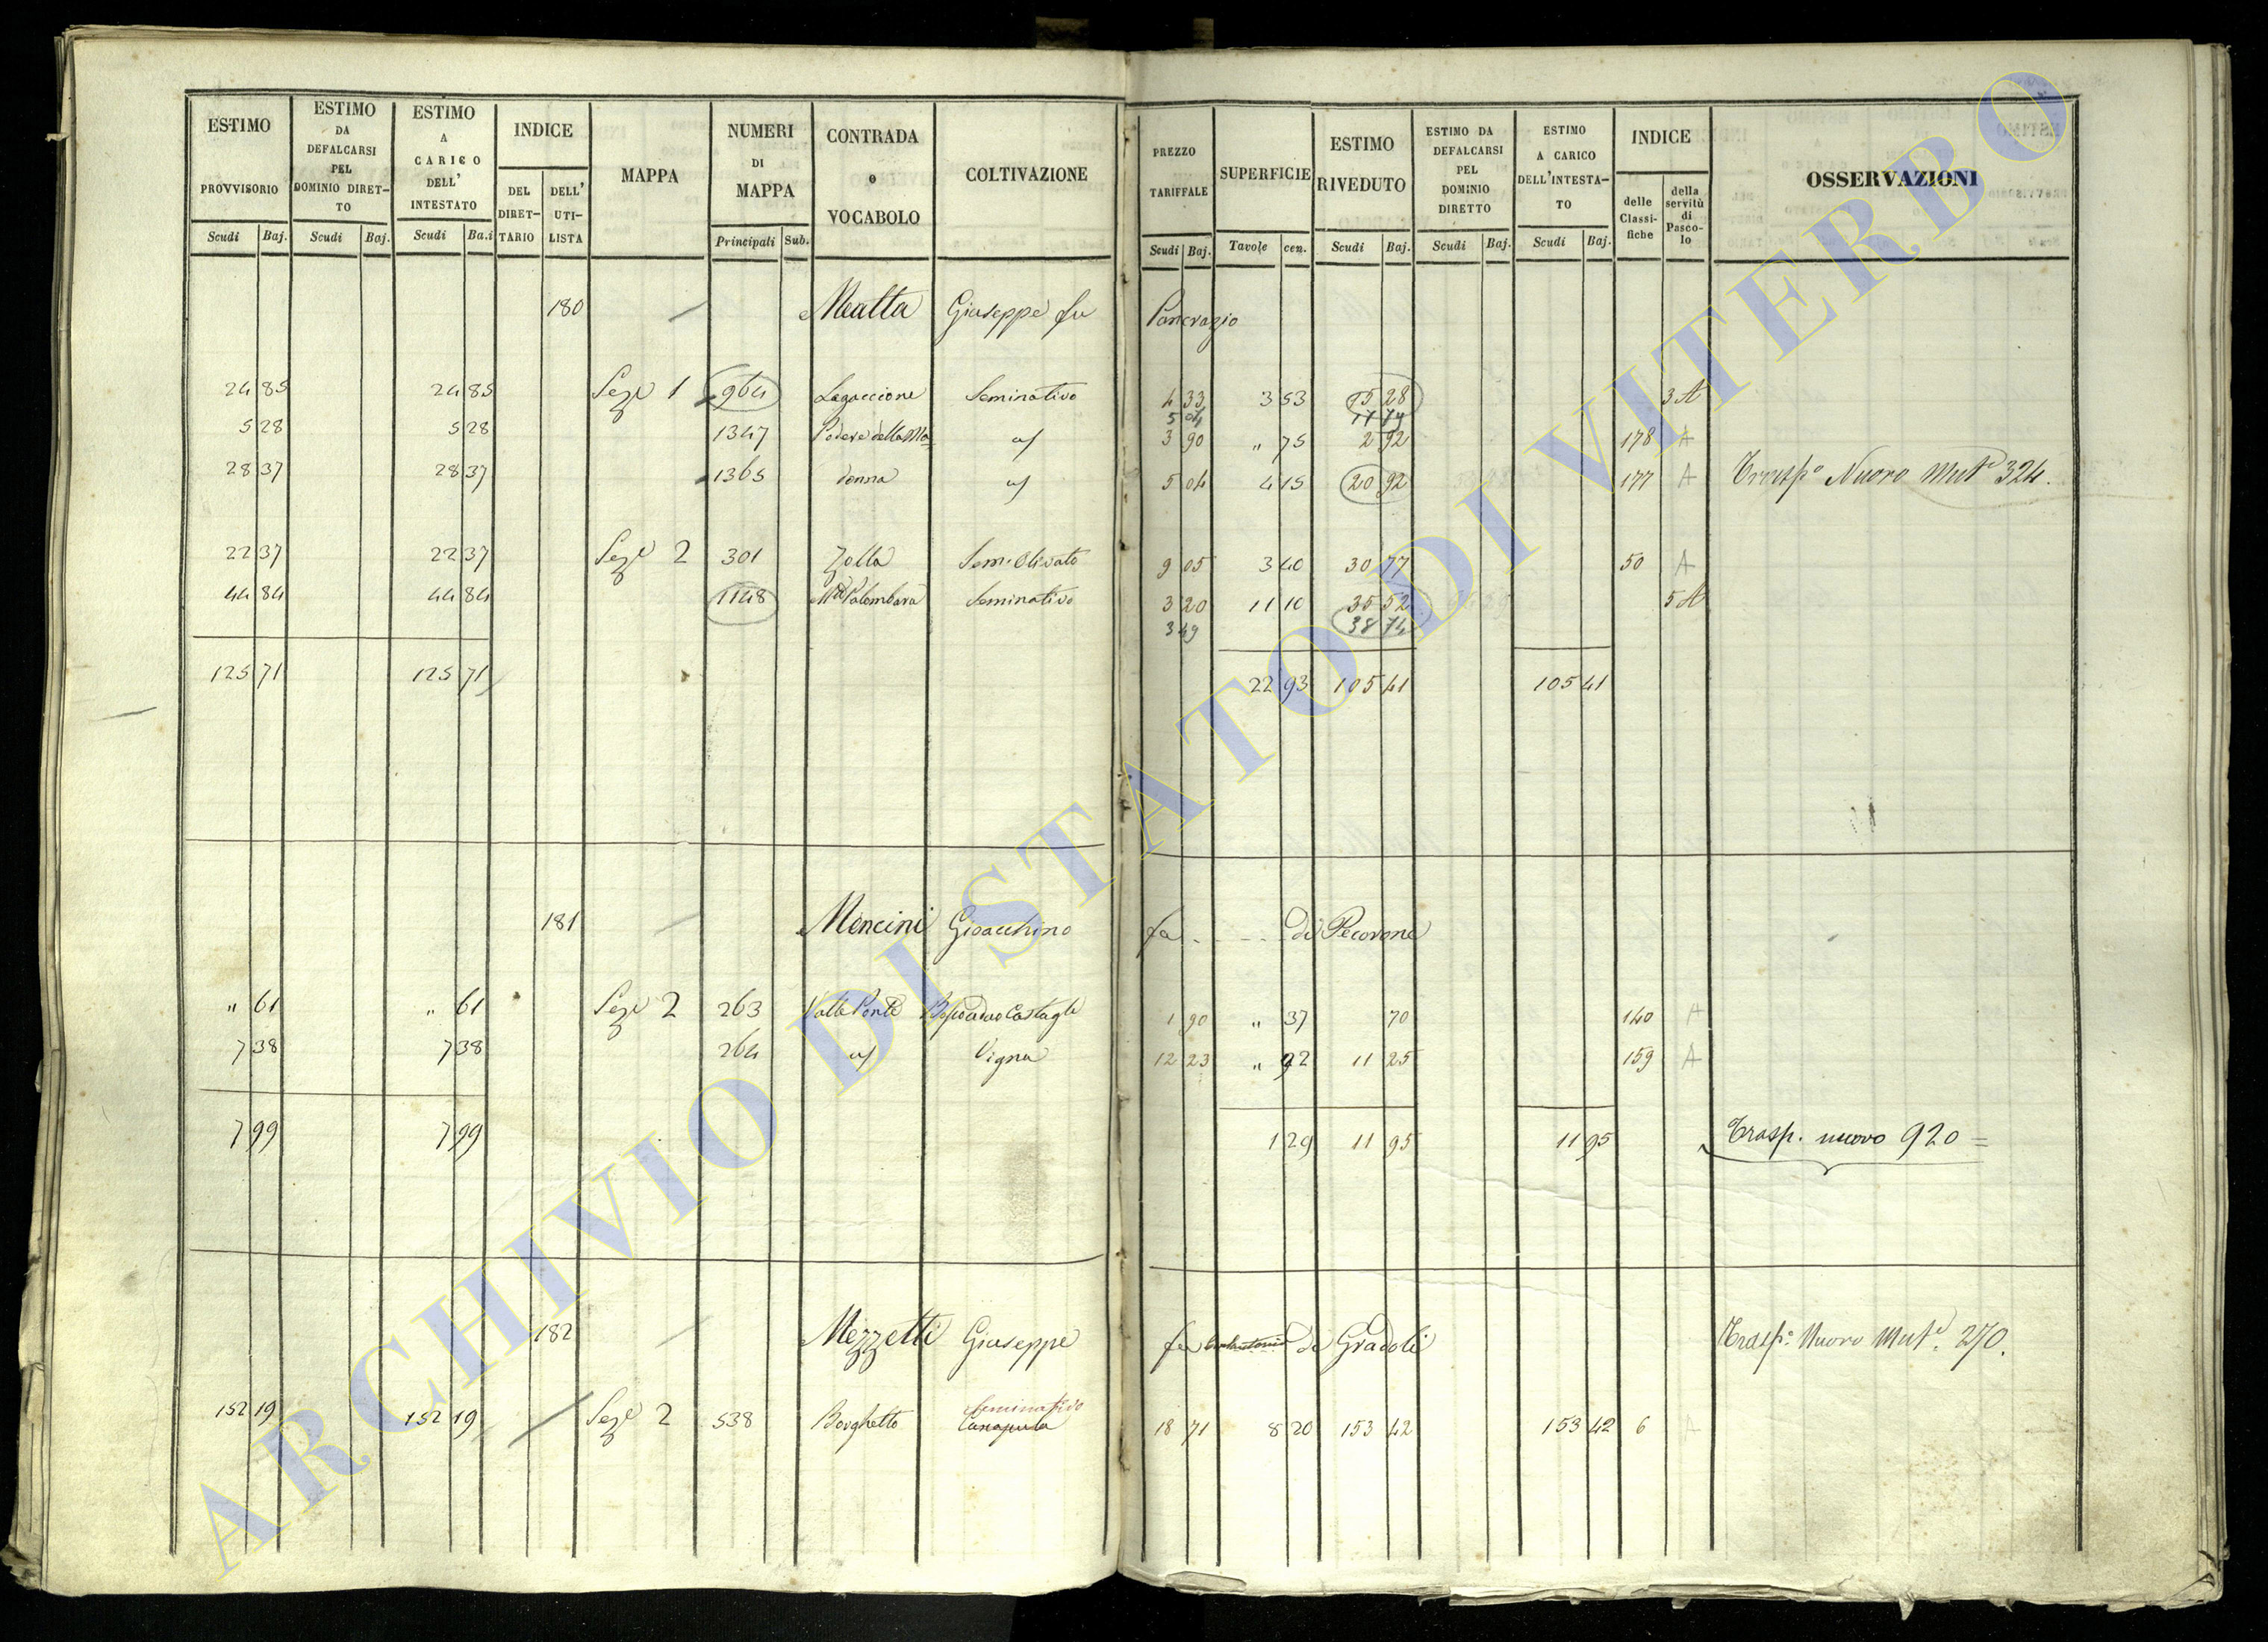 ESTIMO PROVVISORIO Scudi Baj.
ESTIMO DA DEFALCARSI PEL DOMINIO DIRETTO Scudi Baj.
ESTIMO A CARICO DELL' INTESTATO Scudi Ba.i
INDICE DEL DIRETTARIO DELL' UTILISTA
MAPPA
NUMERI DI MAPPA Principali Sub.
CONTRADA o VOCABOLO
COLTIVAZIONE
PREZZO TARIFFALE Scudi Baj.
SUPERFICIE Tavole cen.
ESTIMO RIVEDUTO Scudi Baj.
ESTIMO DA DEFALCARSI PEL DOMINIO DIRETTO Scudi Baj.
ESTIMO A CARICO DELL'INTESTATO Scudi Baj.
INDICE delle Classifiche della servitù di Pascolo
OSSERVAZIONI
180 Mealta Giuseppe fu Pancrazio
24 85 24 85 Seze 1 964 Lagaccione Seminativo 4 33 3 53 15 28 3 A
5 04 17 79
5 28 5 28 1347 Podere della Ma 3 90 " 75 2 92 178 A
28 37 28 37 1365 donna 5 04 4 15 20 92 177 A Trasp° Nuovo Mut° 324.
22 37 22 37 Seze 2 301 Zolla Sem. Olivato 9 05 3 40 30 77 50 A
44 84 44 84 1148 Palombara Seminativo 3 20 11 10 35 52 5 A
3 49 38 74
125 71 125 71 22 93 105 41 105 41
181 Mencini Gioacchino fu di Pecorone
" 61 " 61 Seze 2 263 Valle Ponte 1 90 " 37 70 140 A
7 38 7 38 264 Vigna 12 23 " 92 11 25 159 A
7 99 7 99 1 29 11 95 11 95 Trasp. nuovo 920 =
182 Mezzetti Giuseppe fu di Gradoli Trasp° Nuovo Mut°. 270.
Seminativo
152 19 152 19 Seze 2 538 Borghetto Canapula 18 71 8 20 153 42 153 42 6 A
ARCHIVIO DI STATO DI VITERBO